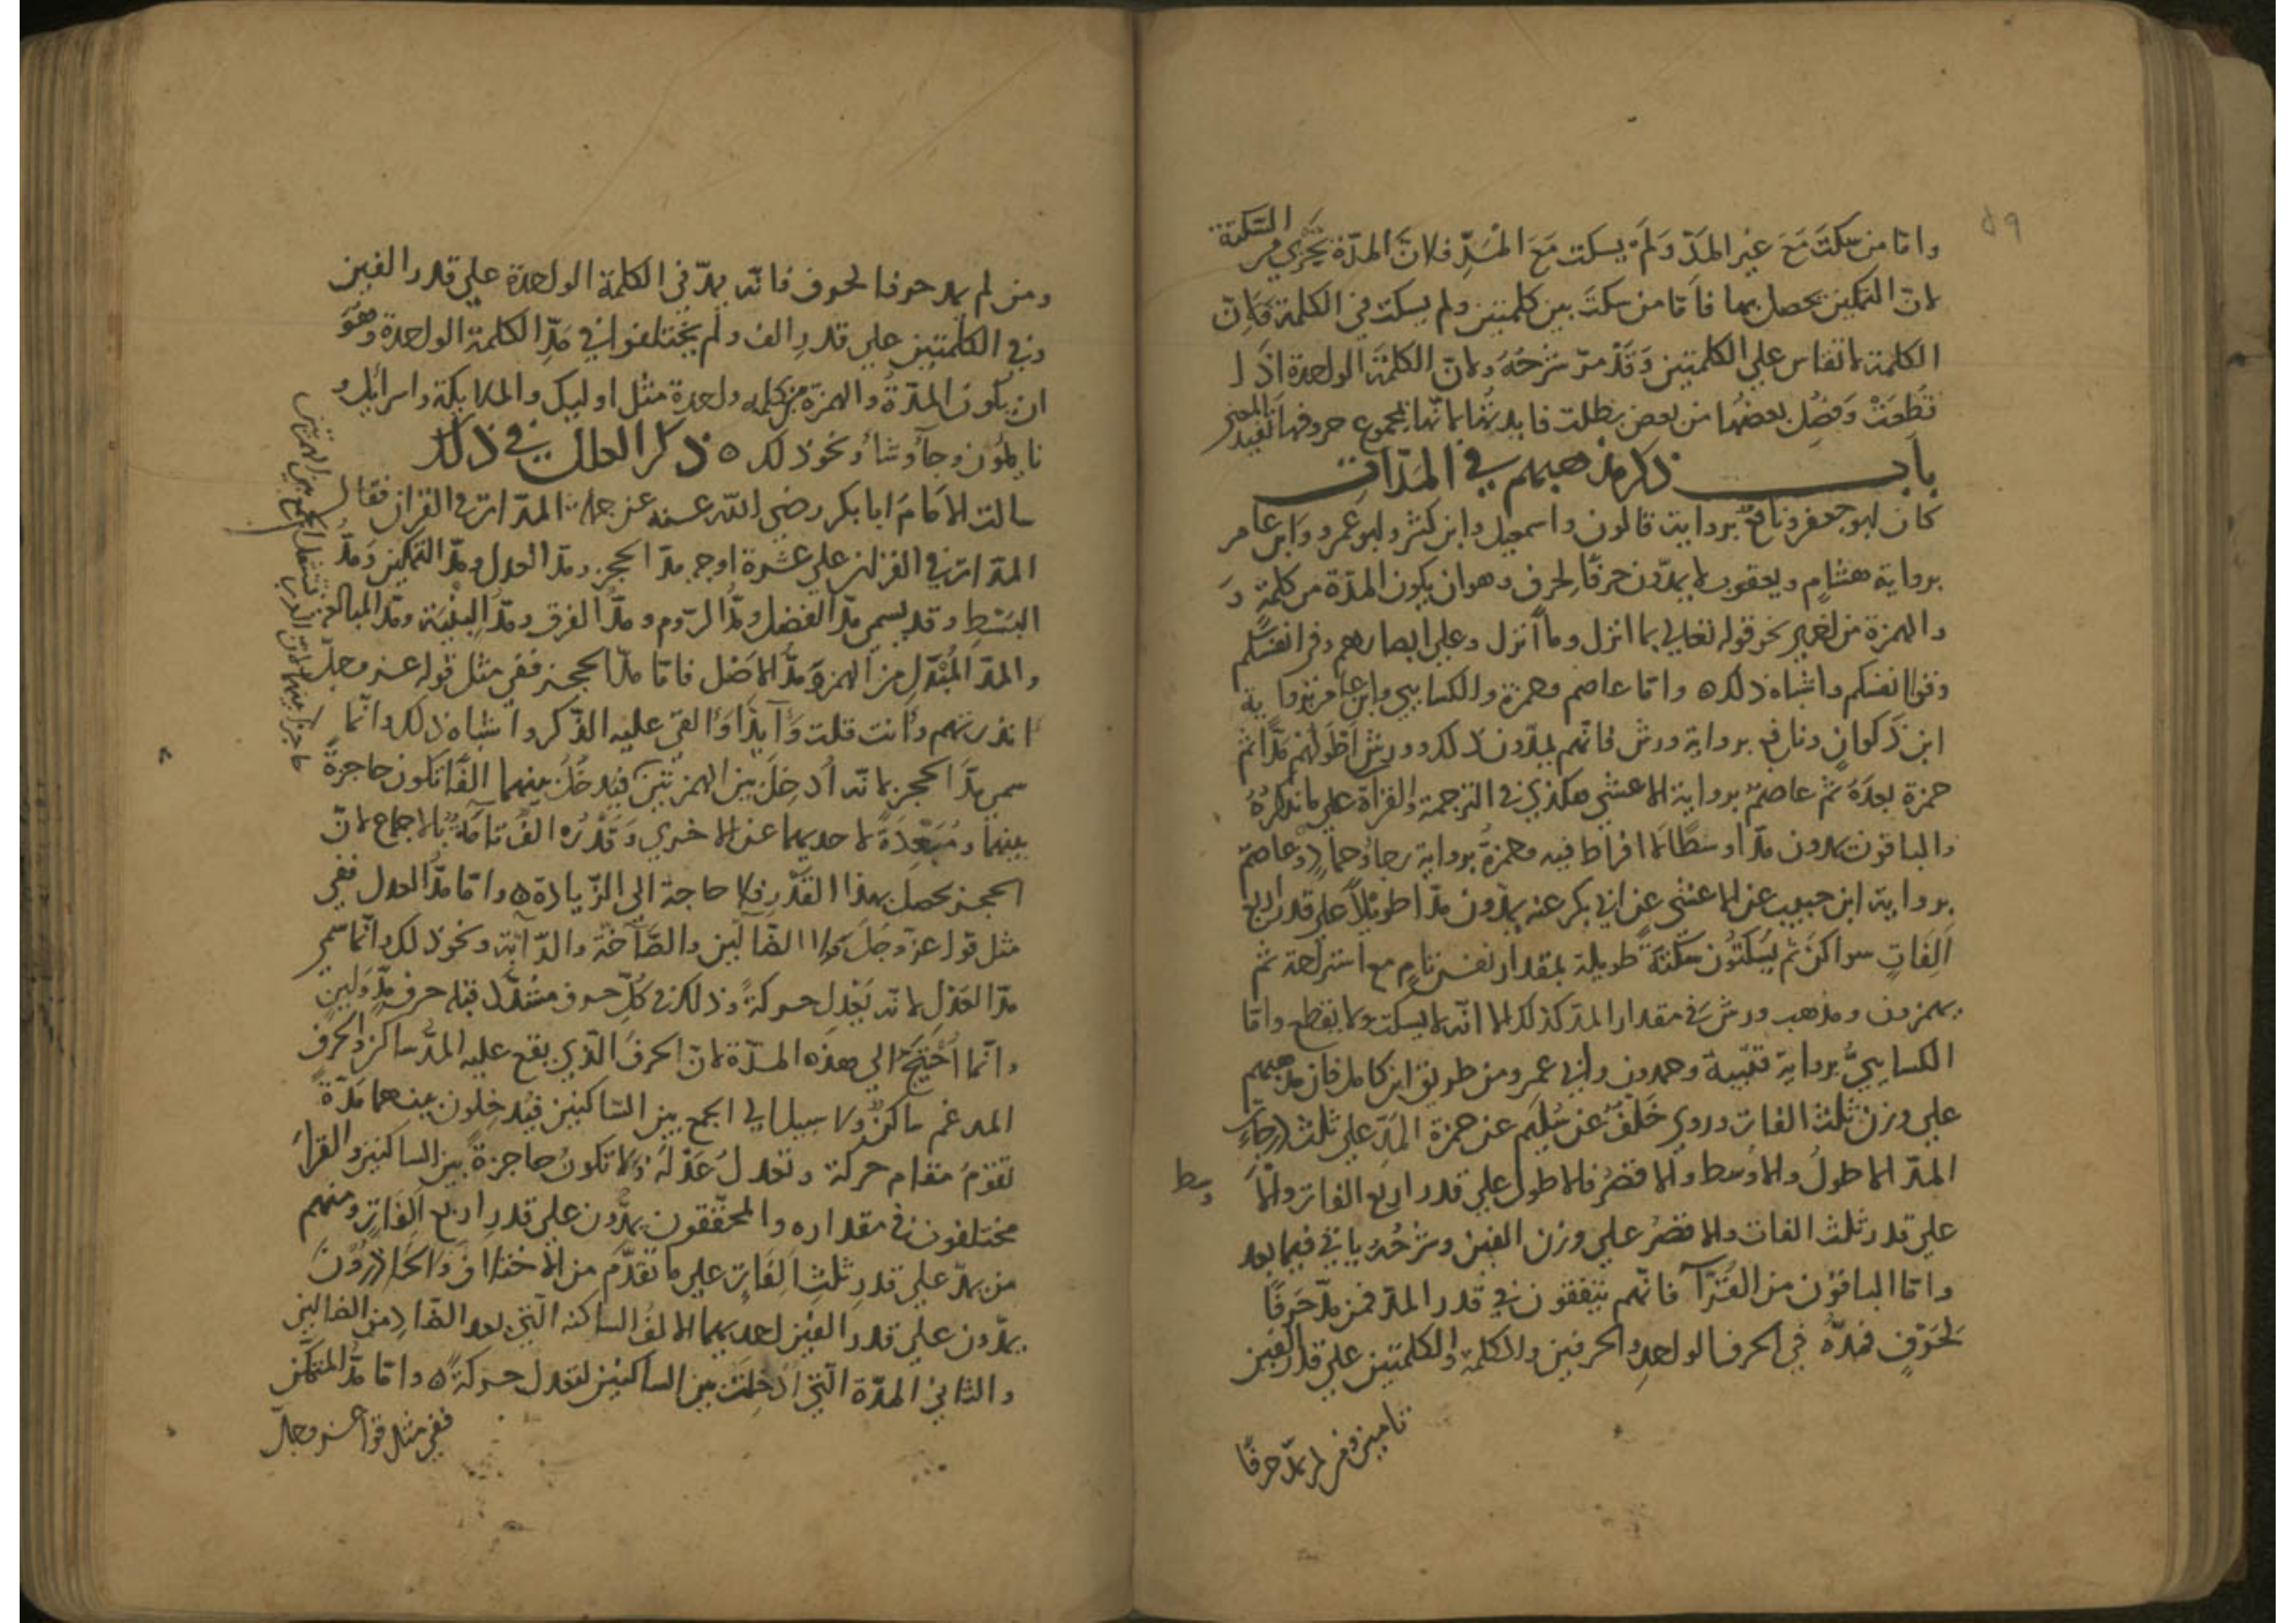 ٥٩
السكتة
واما من سكت مَعَ غير المدّ وَلَم يسكت مَعَ المدِّ فلانّ المدّة تجْري من
لانّ التمكين يحصل بها فاما من سكتَ بين كلمتين ولم يسكت في الكلمة فَاِنّ
الكلمة لا تقاس علي الكلمتين وَقَدْ مرّ شرْحُهُ ولانّ الكلمة الواحدة اذا
قُطِعَتْ وَفُصِل بعضها من بعض بطلت فايدتها لانّها بمجموع حروفها تفيد المعني
باب ذكر مذهبهم في المَدّاتِ
كان ابو جعفر ونافع برواية قالون واسمعيل وابن كثير وابو عمرو وابن عامر
برواية هشامٍ ويعقوب لا يمدّون حرفًا لحرف وهو ان يكون المدّة من كلمةٍ وَ
والهمزة من اخري نحو قوله تعالي بما انزل وما أنزل وعلي ابصارهم وفي انفسكم
وقوا انفسكم واشباه ذلك ٥ واما عاصم وحمزة والكسايي وابن عامر برواية
ابن ذكوانٍ ونافع برواية ورش فانّهم يمدّون ذلك وورش اطولهم مدًّا ثم
حمزة بعدَهُ ثم عاصمٌ برواية الاعشي هكذي في الترجمة والقراة علي ما نذكرُهُ
والباقون يمدون مدّا وسطًا لا افراط فيه وحمزةُ برواية رجاءٍ وحمادٍ وعاصمٌ
برواية ابن حبيب عن الاعشي عن ابي بكر عنه يمدّون مدّا طويلًا علي قدر اربع
اَلِفَاتٍ سواكن ثم يسكتُون سكتةً طويلة بمقدار نفسٍ تامٍ مع استراحة ثم
يهمزون ومذهب ورش في مقدار المدّ كذلك الا انّه لا يسكت ولا يقطع واما
الكسايي برواية قتيبة وحمدون وابي عمرو من طريق ابن كامل فان مذهبهم
علي وزن ثلث الفات وروي خَلَفٌ عن سُلَيم عن حمزة المدّ علي ثلث درجاتٍ
المدّ الاطولُ والاوسط والاقصرُ فالاطول علي قدر اربع الفات والاَ
وسط
علي قدر ثلث الفات والاقصرُ علي وزن الفين وشرْحُهُ ياتي فيما بعد
واما الباقوْن من القُرّآ فانّهم يتفقون في قدر المدّ فمن مدّ حَرفًا
لحَرْفٍ فمدّهُ في الحرف الواحدِ والحرفين والكلمة والكلمتين علي قدر الفين
تامين ومن لم يمدّ حرفًا
ومن لم يمد حرفا لحرف فانّه يمدّ في الكلمة الواحدة علي قدر الفين
وفي الكلمتين علي قدرِ الف ولم يختلفوا في مَدِّ الكلمة الواحدة وهُوَ
ان يكون المدّةُ والهمزة من كلمه واحدة مثل اوليك والملايكة واسرائيل و
نايمُون وجآءُ وشآءُ ونحو ذلك ٥ ذكر العلل في ذلك
سالت الامَامَ ابا بكر رضي الله عنه عن جملة المدّات في القران فقال
المدّات في القران علي عشرة اوجه مدّ الحجز ومدّ العدل ومدّ التمكين وَمدُّ
البَسْطِ وقد يسمي مدّ الفصْل ومدُّ الرّوم ومدّ الفرق ومدّ البِنْيَة ومدّ المبالغة
والمدّ المُبْدَل من الهمزة ومدُّ الاصْل فاما مدّ الحجز ففي مثل قوله عز وجلّ
اانذرتهم وأانت قلت وَآيذَا وَاالقي عليه الذّكر واشباه ذلك وانّما
سمي مدَّ الحجز لانّه أُدخِلَ بين الهمزتين فيُدخَلُ بينهما الفًا تكون حاجزةً
بينهما ومُبَعِدَةً لاحديهما عن الاخري وَقَدْرُه الفٌ تامّةٌ بالاجماع لانّ
الحجز يحصل بهذا القَدْر فلا حاجة الي الزّيادة ٥ واما مدُّ العدل ففي
مثل قوله عزّ وجَلّ ولا الضّآلين والصّآخة والدّآبة ونحو ذلك وانّما سمّي
مدّ العَدْل لانّه يَعْدِل حركةً وذلك في كلّ حرف مشدّدٍ قبله حرف مدٍّ ولينٍ
وانّما اُحتيجَ الي هذه المدّة لانّ الحرفَ الّذي يقع عليه المدّ ساكن والحرفُ
المدغم ساكنٌ ولا سبيل الي الجمع بين السّاكنين فيُدخِلون بينهما مَدّةً
تقومُ مقام حركة وتعدلُ عَدْلَهُ ولا تكونُ حاجزةً بين الساكنين والقراء
مختلفون في مقداره والمحقّقون يمدُّون علي قدرِ اربع اَلِفَاتٍ ومنهم
من يمدّ علي قدرِ ثلثِ اَلِفَاتٍ علي ما تقدّم من الاختلاف وَالحَادِرُونَ
يمدّون علي قدر الفين احديهما الالفُ الساكنة الّتي بعد الضّادِ من الضالين
والثاني المدّة الّتي اُدخِلَتْ بين الساكنين لتعدل حركةً ٥ واما مدّ التمكّن
ففي مثل قوله عز وجلّ
تستثقل الجمع بين الهمزتين
حاجزا بينهما لان العرب